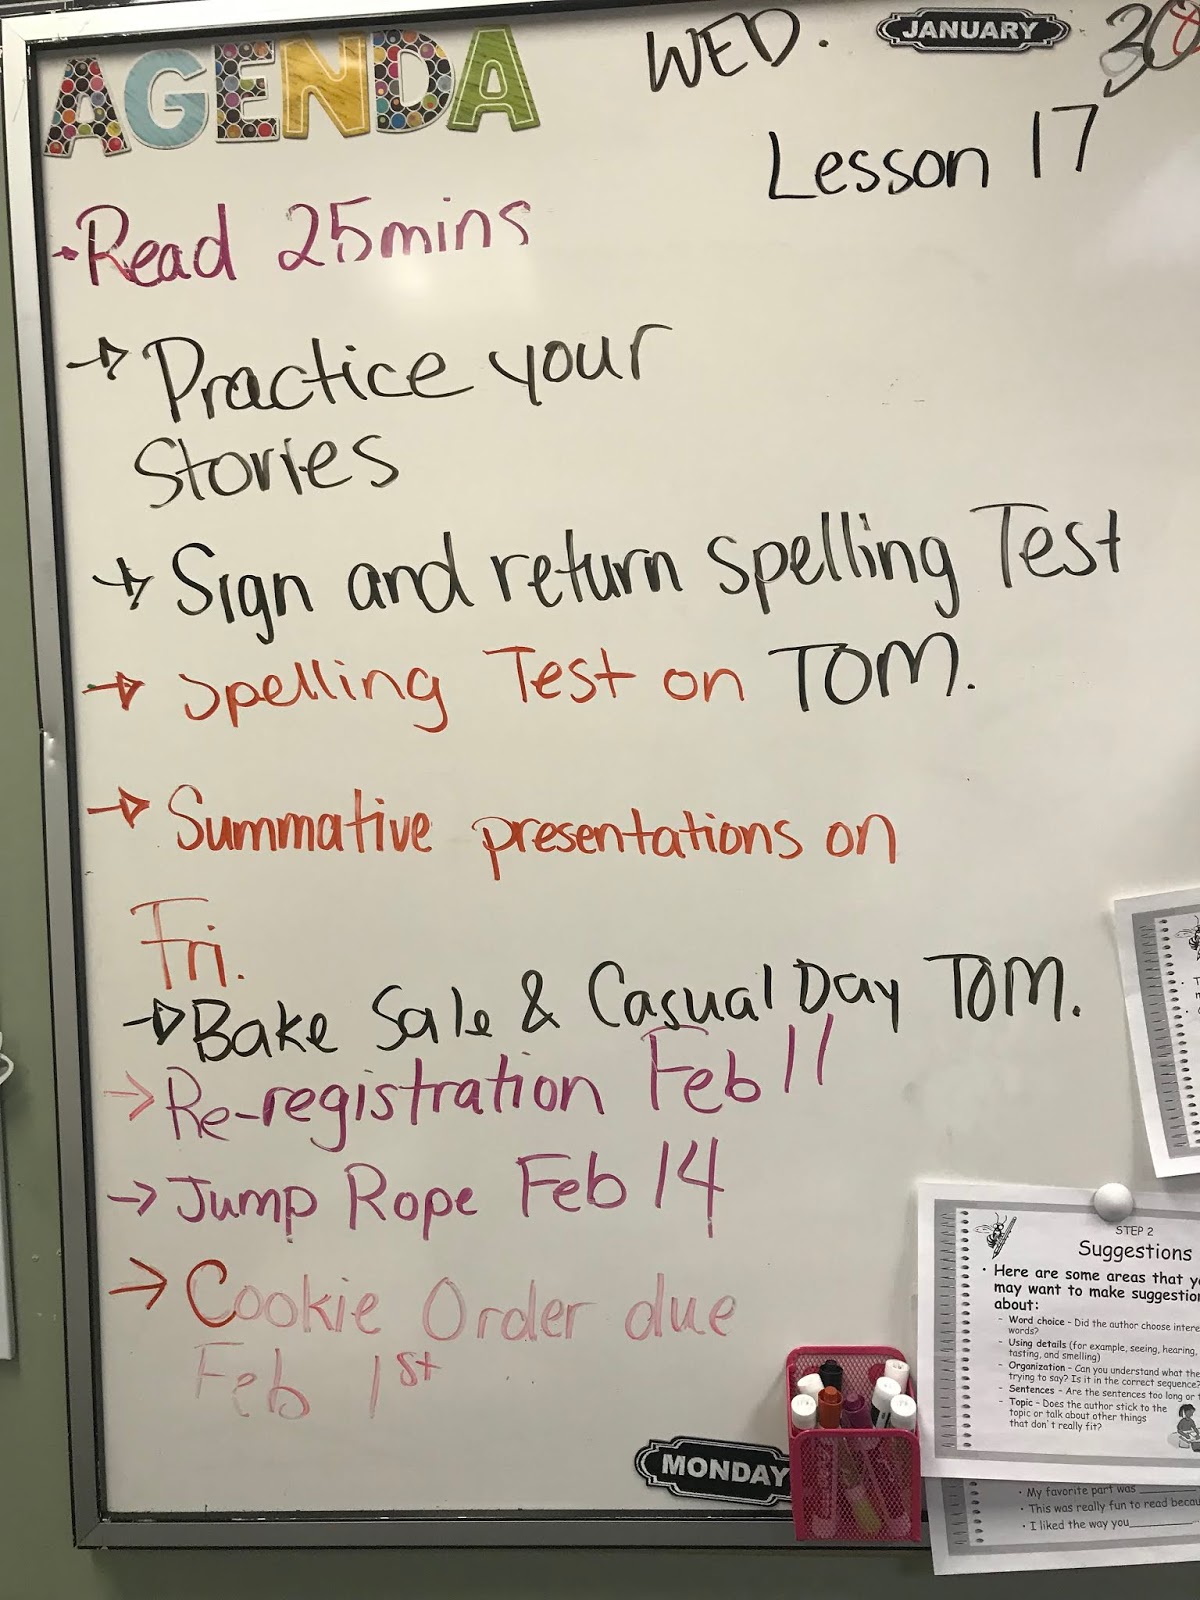 AGENDA
WED.
JANUARY
30
Lesson 17
Read 25mins
Practice your
Stories
Sign and return spelling Test
Spelling Test on TOM.
Summative presentations on
Fri.
Bake Sale & Casual Day TOM.
Re-registration Feb 11
Jump Rope Feb 14
Cookie Order due
Feb 1st
MONDAY
STEP 2
Suggestions
• Here are some areas that
may want to make
about:
- Word choice - Did the author choose
words?
- Using details (for example, seeing, hearing,
tasting, and smelling)
- Organization - Can you understand what
trying to say? Is it in the correct sequence?
- Sentences - Are the sentences too long or
- Topic - Does the author stick to the
topic or talk about other things
that don't really fit?
• My favorite part was
• This was really fun to read
• I liked the way you